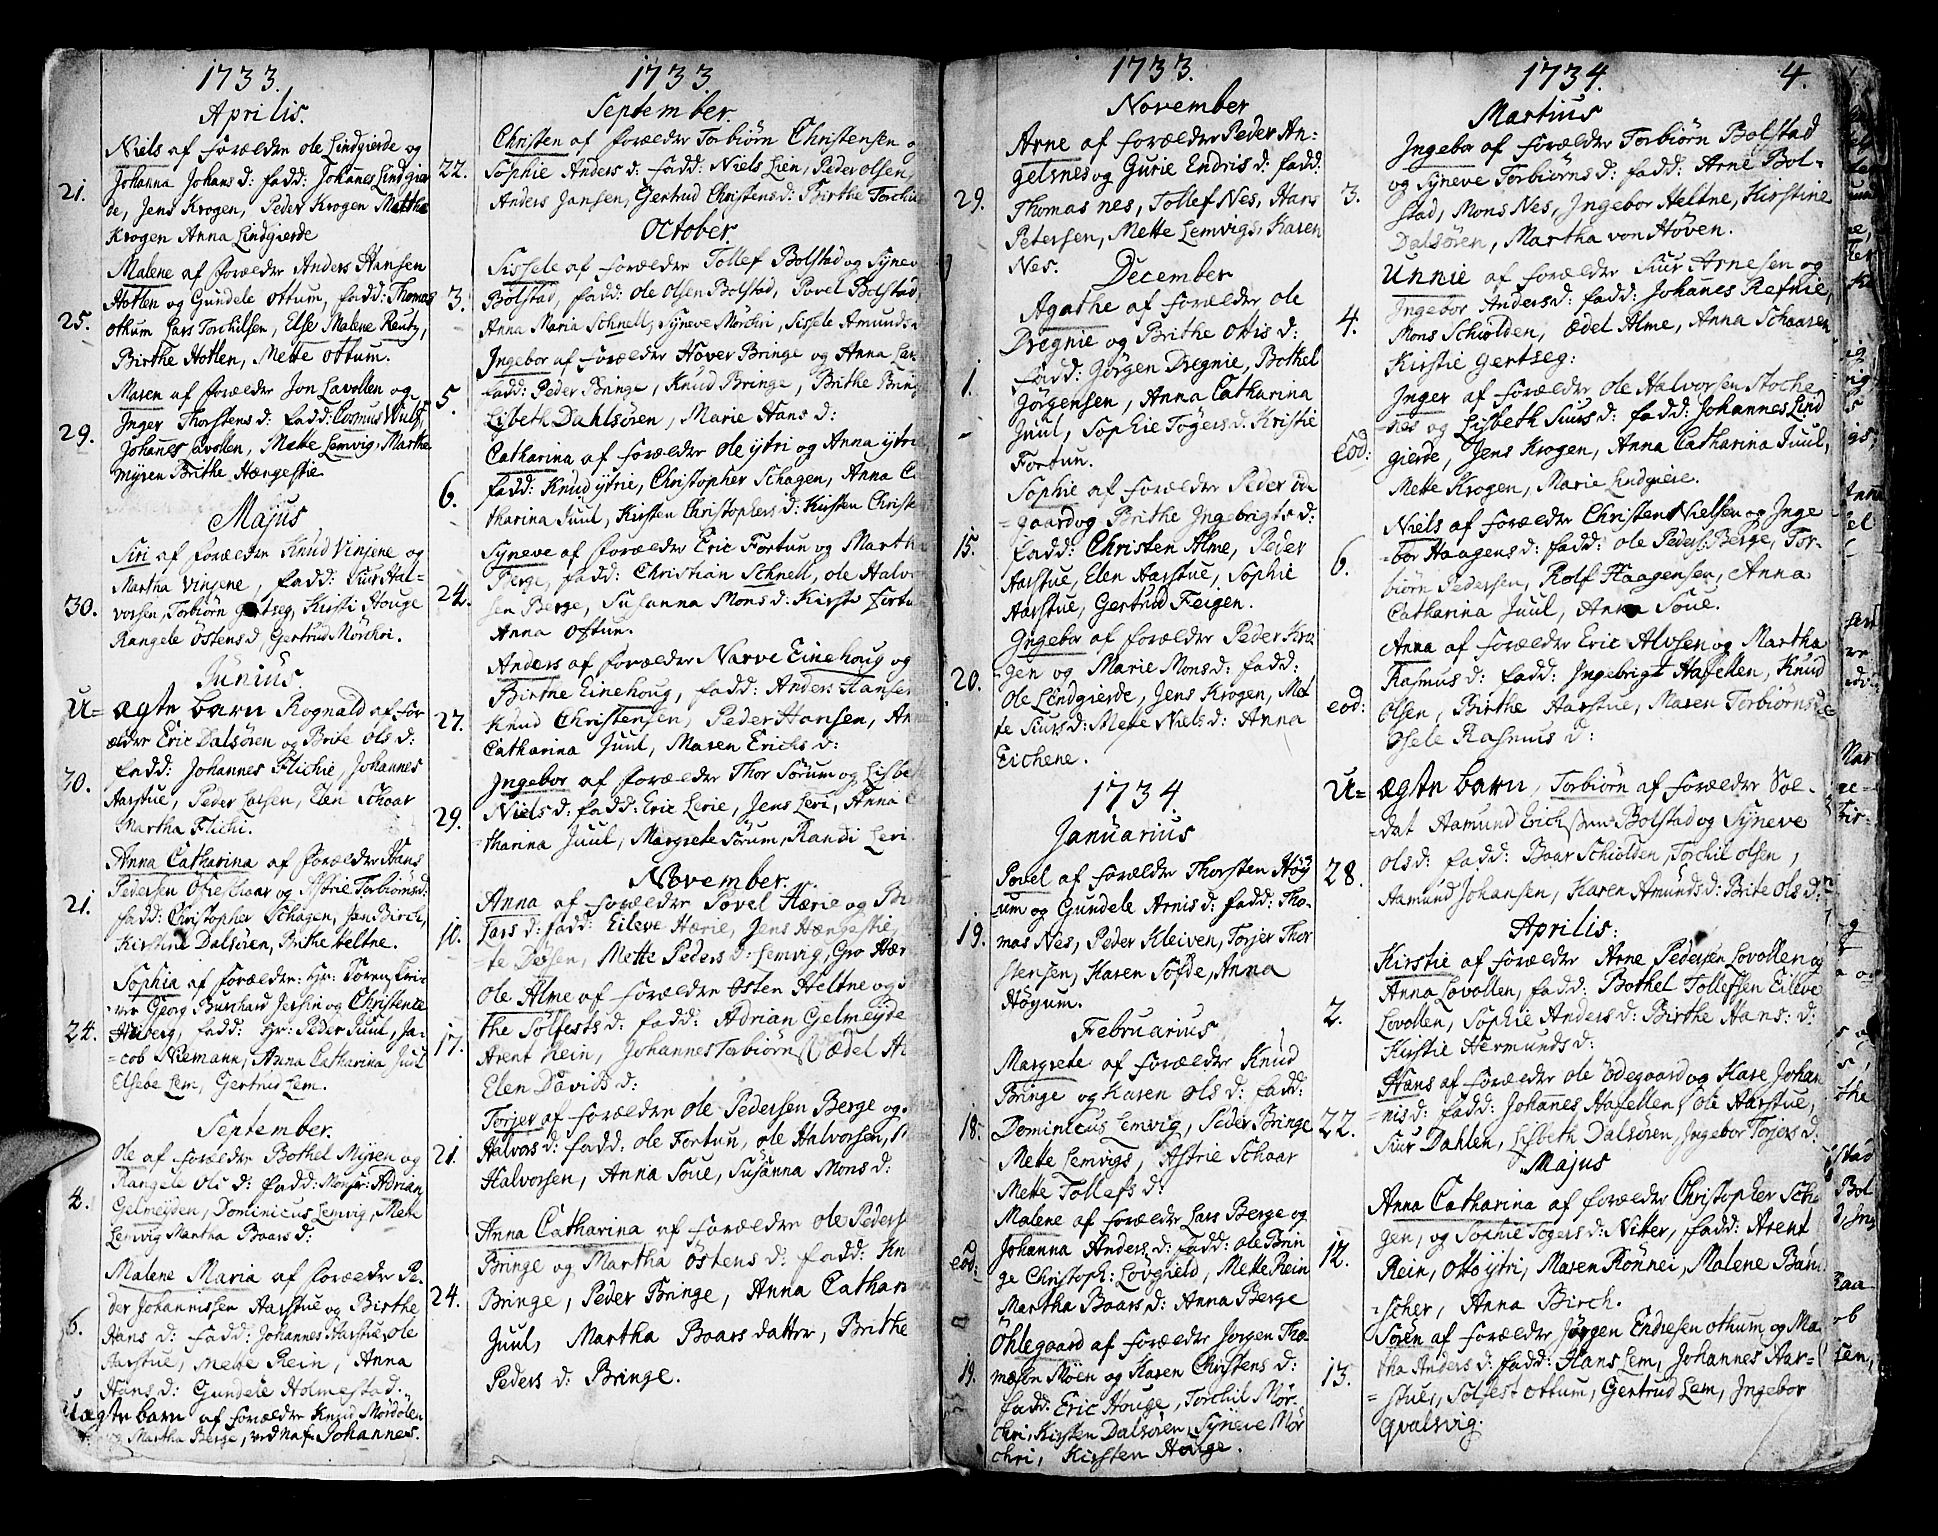 1733.
Aprilis.
Niels af forældre ole Lindgierde og
21. Johanna Johans d: fadd: Johanes Lindgier
de, Jens Krogen, Peder Krogen Mattha
Krogen Anna Lindgierde
Malene af forældre Anders Hansen
Hotlen og Gundele ottum, fadd: Thomas
25. othum Lars Torchilsen, Else Malene Rautz,
Birthe Hotlen, Mette ottum.
Maren af forældre Jon Lavollen og
29. Inger Thorstens d: fadd: Cosmus Wulf,
Johanes Lavollen, Mette Lemvig, Marthe
Myren Brithe Hængestie
Majus
Siri af forældre Knud Vinjene og
Martha Vinjene, fadd: Siur Hal-
30. vorsen, Torbiørn gertseg, Kirsti Houge
Rangele Østens d, Gertrud Mörchri.
Junius
U= ægte barn Rognald af for
ældre Eric Dalsøren og Brite ols d:
fadd: Johannes Flichie, Johannes
70. Aarstue, Peder Larsen, Elen Schaar
Martha Flichi.
Anna Catharina af forældre Hans
Pedersen Schaar og Astrie Torbiørns d:
21. fadd: Christopher Schagen, Jan Birch,
Kirstine Dalsøren, Brithe Heltne.
Sophia af forældre: Hr: Søren
Georg Burchard og Christence
24. Heiberg, fadd: Hr: Peder Juul, Ja-
=cob Niemann, Anna Catharina Juul
Elsebe Lem, Gertrud Lem.
September.
ole af forældre Bothel Myren og
Rangele ols d: fadd: Monsr: Adrian
4. Gelmeyden, Dominicus Lemvig, Mette
Lemvig Martha Boars d:
Malene Maria af forældre Pe-
der Johannissen Aarstue og Birthe
6. Hans d: fadd: Johannes Aarstue, ole
Aarstue, Mette Rein, Anna
Hans d: Gundele Holmestad.
Uægte barn af forældre Knud Mördølen
og Martha Berge, ved nafn Johannes.
1733.
September.
Christen af forældre Torbiørn Christensen
22. Sophie Anders d: fadd: Niels Lien, Peder olsen,
Anders Jansen, Gertrud Christens d: Birthe Torchil
October.
Sissele af forældre Tollef Bolstad og Syneve
3. Bolstad, fadd: ole olsen Bolstad, Povel Bolstad,
Anna Maria Schnell, Syneve Mörchri, Sissele Amunds
Ingebor af forældre Hover Bringe og Anna Lar
5. fadd: Peder Bringe, Knud Bringe, Brithe Bring
Lisbeth Dahlsøren, Marie Hans d:
Catharina af forældre ole ytri og Anna ytri
6. fadd: Knud ytrie, Christopher Schagen, Anna Ca
tharina Juul, Kirsten Christophers d: Kirsten Christe
Syneve af forældre Eric Fortun og Martha
24. Berge, fadd: Christian Schnell, ole Halvor
sen Berge, Susanna Mons d: Kirste Fortu
Anna oftun.
Anders af forældre Narve Einehoug og
Birthe Einehoug, fadd: Anders Hansen
27. Knud Christensen, Peder Hansen, Anna
Catharina Juul, Maren Erichs d:
Ingebor af forældre Thor Sørum og Lisbe
29. Niels d: fadd: Eric Lerie, Jens Leri, Anna C
=tharina Juul, Margrete Sørum, Randi Leri
November.
Anna af forældre Povel Hærie og Birth
10. Lars d: fadd: Eileve Hærie, Jens Hængestie,
=te Døsen, Mette Peders d: Lemvig, Gro Hær
ole Alme af forældre Østen Heltne og
the Solfests d: fadd: Adrian Gelmeyde
17. Arent Rein, Johannes Torbiørns Ædel
Elen Davids d:
Torjer af forældre ole Pedersen Berge og
21. Halvors d: fadd: ole Fortun, ole Halvorsen,
Halvorsen, Anna Soue, Susanna Mons d:
Anna Catharina af forældre ole Peders
Bringe og Martha Østens d: fadd: Knu
24. Bringe, Peder Bringe, Anna Catharina
Juul, Martha Boars datter, Brithe
Peders d: Bringe.
1733.
November
Arne af forældre Peder An=
getsnes og Gurie Endris d: fadd:
29. Thomas Nes, Tollef Nes, Hans
Petersen, Mette Lemvigs, Karen
Nes.
December
Agathe af forældre ole
Dregnie og Brithe Ottis d:
1. fadd: Jørgen Dregnie, Bothel
Jørgensen, Anna Catharina
Juul, Sophie Togers d: Kristie
Fortun.
Sophie af forældre Peder
=gaard og Brithe Ingebrigts d:
15. fadd: Christen Alme, Peder
Aarstue, Elen Aarstue, Sophie
Aarstue, Gertrud Feigen.
Ingebor af forældre Peder Kro
gen og Marie Mons d: fadd:
20. Ole Lindgierde, Jens Krogen, Met
te Siurs d: Mette Niels d: Anna
Eichene.
1734.
Januarius
Povel af forældre Thorsten Höy
um og Gundele Arnis d: fadd: Tho-
19. mas Nes, Peder Kleiven, Torjer Thor
stensen, Karen Søfde, Anna
Höyum.
Februarius
Margrete af forældre Knud
Bringe og Karen ols d: fadd:
18. Dominicus Lemvig, Peder Bringe
Mette Lemvigs, Astrie Schaar
Mette Tollefs d:
Malene af forældre Lars Berge og
eod: Johanna Anders d: fadd: ole Brin
ge Christoph: Lovgield, Mette Rein
Martha Boars d: Anna Berge
Öhlegaard af forældre Jørgen Tho
19. mæsøn Möen og Karen Christens d:
fadd: Eric Houge, Torchil Mör-
chri, Kirsten Dalsøren, Syneve Mör
chri, Kirsten Houge.
1734. 4.
Martius
Ingebor af forældre Torbiørn Bolstad
og Syneve Torbiørns d: fadd: Arne Bol-
3. stad, Mons Nes, Ingebor Heltne, Kirstine
Dalsøren, Martha von Høven.
Unnie af forældre Siur Arnesen og
Ingebor Anders d: fadd: Johanes Refnie,
4. Mons Schiolden, Ædel Alme, Anna Schaaren
Kirstie Gertseg:
Inger af forældre ole Halvorsen Stoche
nes og Lisbeth Siurs d: fadd: Johannes Lind
eod: gierde, Jens Krogen, Anna Catharina Juul,
Mette Krogen, Marie Lindgiere.
Niels af forældre Christen Nielsen og Inge
=bor Haagens d: fadd: ole Peders: Berge, Tor-
6. biørn Pedersen, Rolf Haagensen, Anna
Catharina Juul, Anna Soue.
Anna af forældre Eric Alvsen og Martha
Rasmus d: fadd: Ingebrigt Hafellen, Knud
eod: Olsen, Birthe Aarstue, Maren Torbiørns d
Osele Rasmus d:
U= ægte barn, Torbiørn af forældre Sol-
=dat Aamund Erichsen Bolstad og Syneve
28. ols d: fadd: Boar Schiolden, Torchil olsen,
Aamund Johansen, Karen Amunds d: Brite ols d:
Aprilis:
Kirstie af forældre Arne Pedersen Lovollen og
Anna Lovollen, fadd: Bothel Tollefsen Eileve
2. Lovollen, Sophie Anders d: Birthe Hans: d:
Kirstie Hermunds d:
Hans af forældre ole Ödegaard og Kare Johan
=nis d: fadd: Johanes Hafellen, ole Aarstue,
22. Siur Dahlen, Lisbeth Dalsøren, Ingebor Torjers d.
Majus
Anna Catharina af forældre Christopher Scha
gen, og Sophie Togers d: Vitter, fadd: Arent
12. Rein, Otto ytri, Maren Rönnei, Malene Bün
=scher, Anna Birch.
Søren af forældre Jørgen Endresen othum og Ma
tha Anders d: fadd: Hans Lem, Johannes Aar=
13. =stue, Solfest ottum, Gertrud Lem, Ingebor
Qvalsvig.